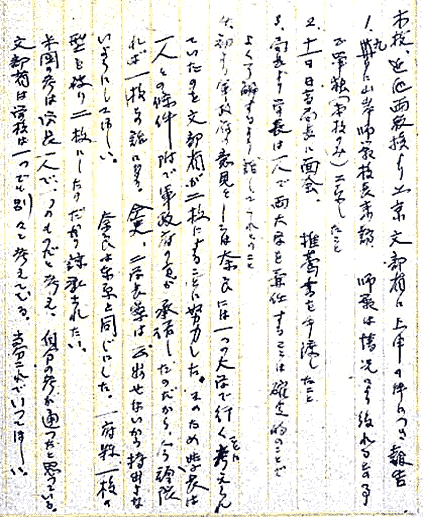 本校 落合両教授より上京文部省に上申の件につき報告
1. 九日に山岸師範校長来訪 師範は情況により後れるとの事
で単独(本校のみ)上京したこと
2. 十一日日高局長に面会、推薦書を手渡したこと
3. 局長より学長は一人で両大学を兼任することは確定的のことで
よく了解するよう話してくれとのこと
最初より軍政府の意見としては奈良には一つの大学で行くことに考えられ
ていたのを文部省が二校にすることに努力した。そのため学長は
一人との条件附で軍政府の方が承諾したのだから、今議院
れば一校の話になる。今更、二学長案は云出せないから持出さな
いようにしてほしい。 奈良は東京と同じにした。一府県一校の
型を破り二校にしたのだから諒承されたい。
米国の考は学長一人で、一つのものだと考え、自分の考が通つたと思つている。
文部省は学校は一つでも別々と考えている。当分これでいつてほしい。